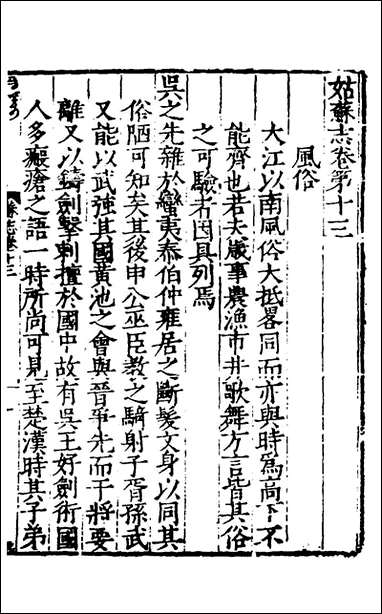 姑蘇志卷第十三
風俗
大江以南風俗大抵畧同而亦與時爲高下不
能齊也若夫歲事農漁市井歌舞方言皆其俗
之可驗者因具列焉
吳之先雜於蠻夷泰伯仲雍居之斷髮文身以同其
俗陋可知矣其後申公巫臣教之騎射子胥孫武
又能以武強其國黃池之會與晉爭先而干將要
離又以鑄劍擊刺擅於國中故有吳王好劍術國
人多瘢瘡之語一時所尚可見至楚漢時其子弟